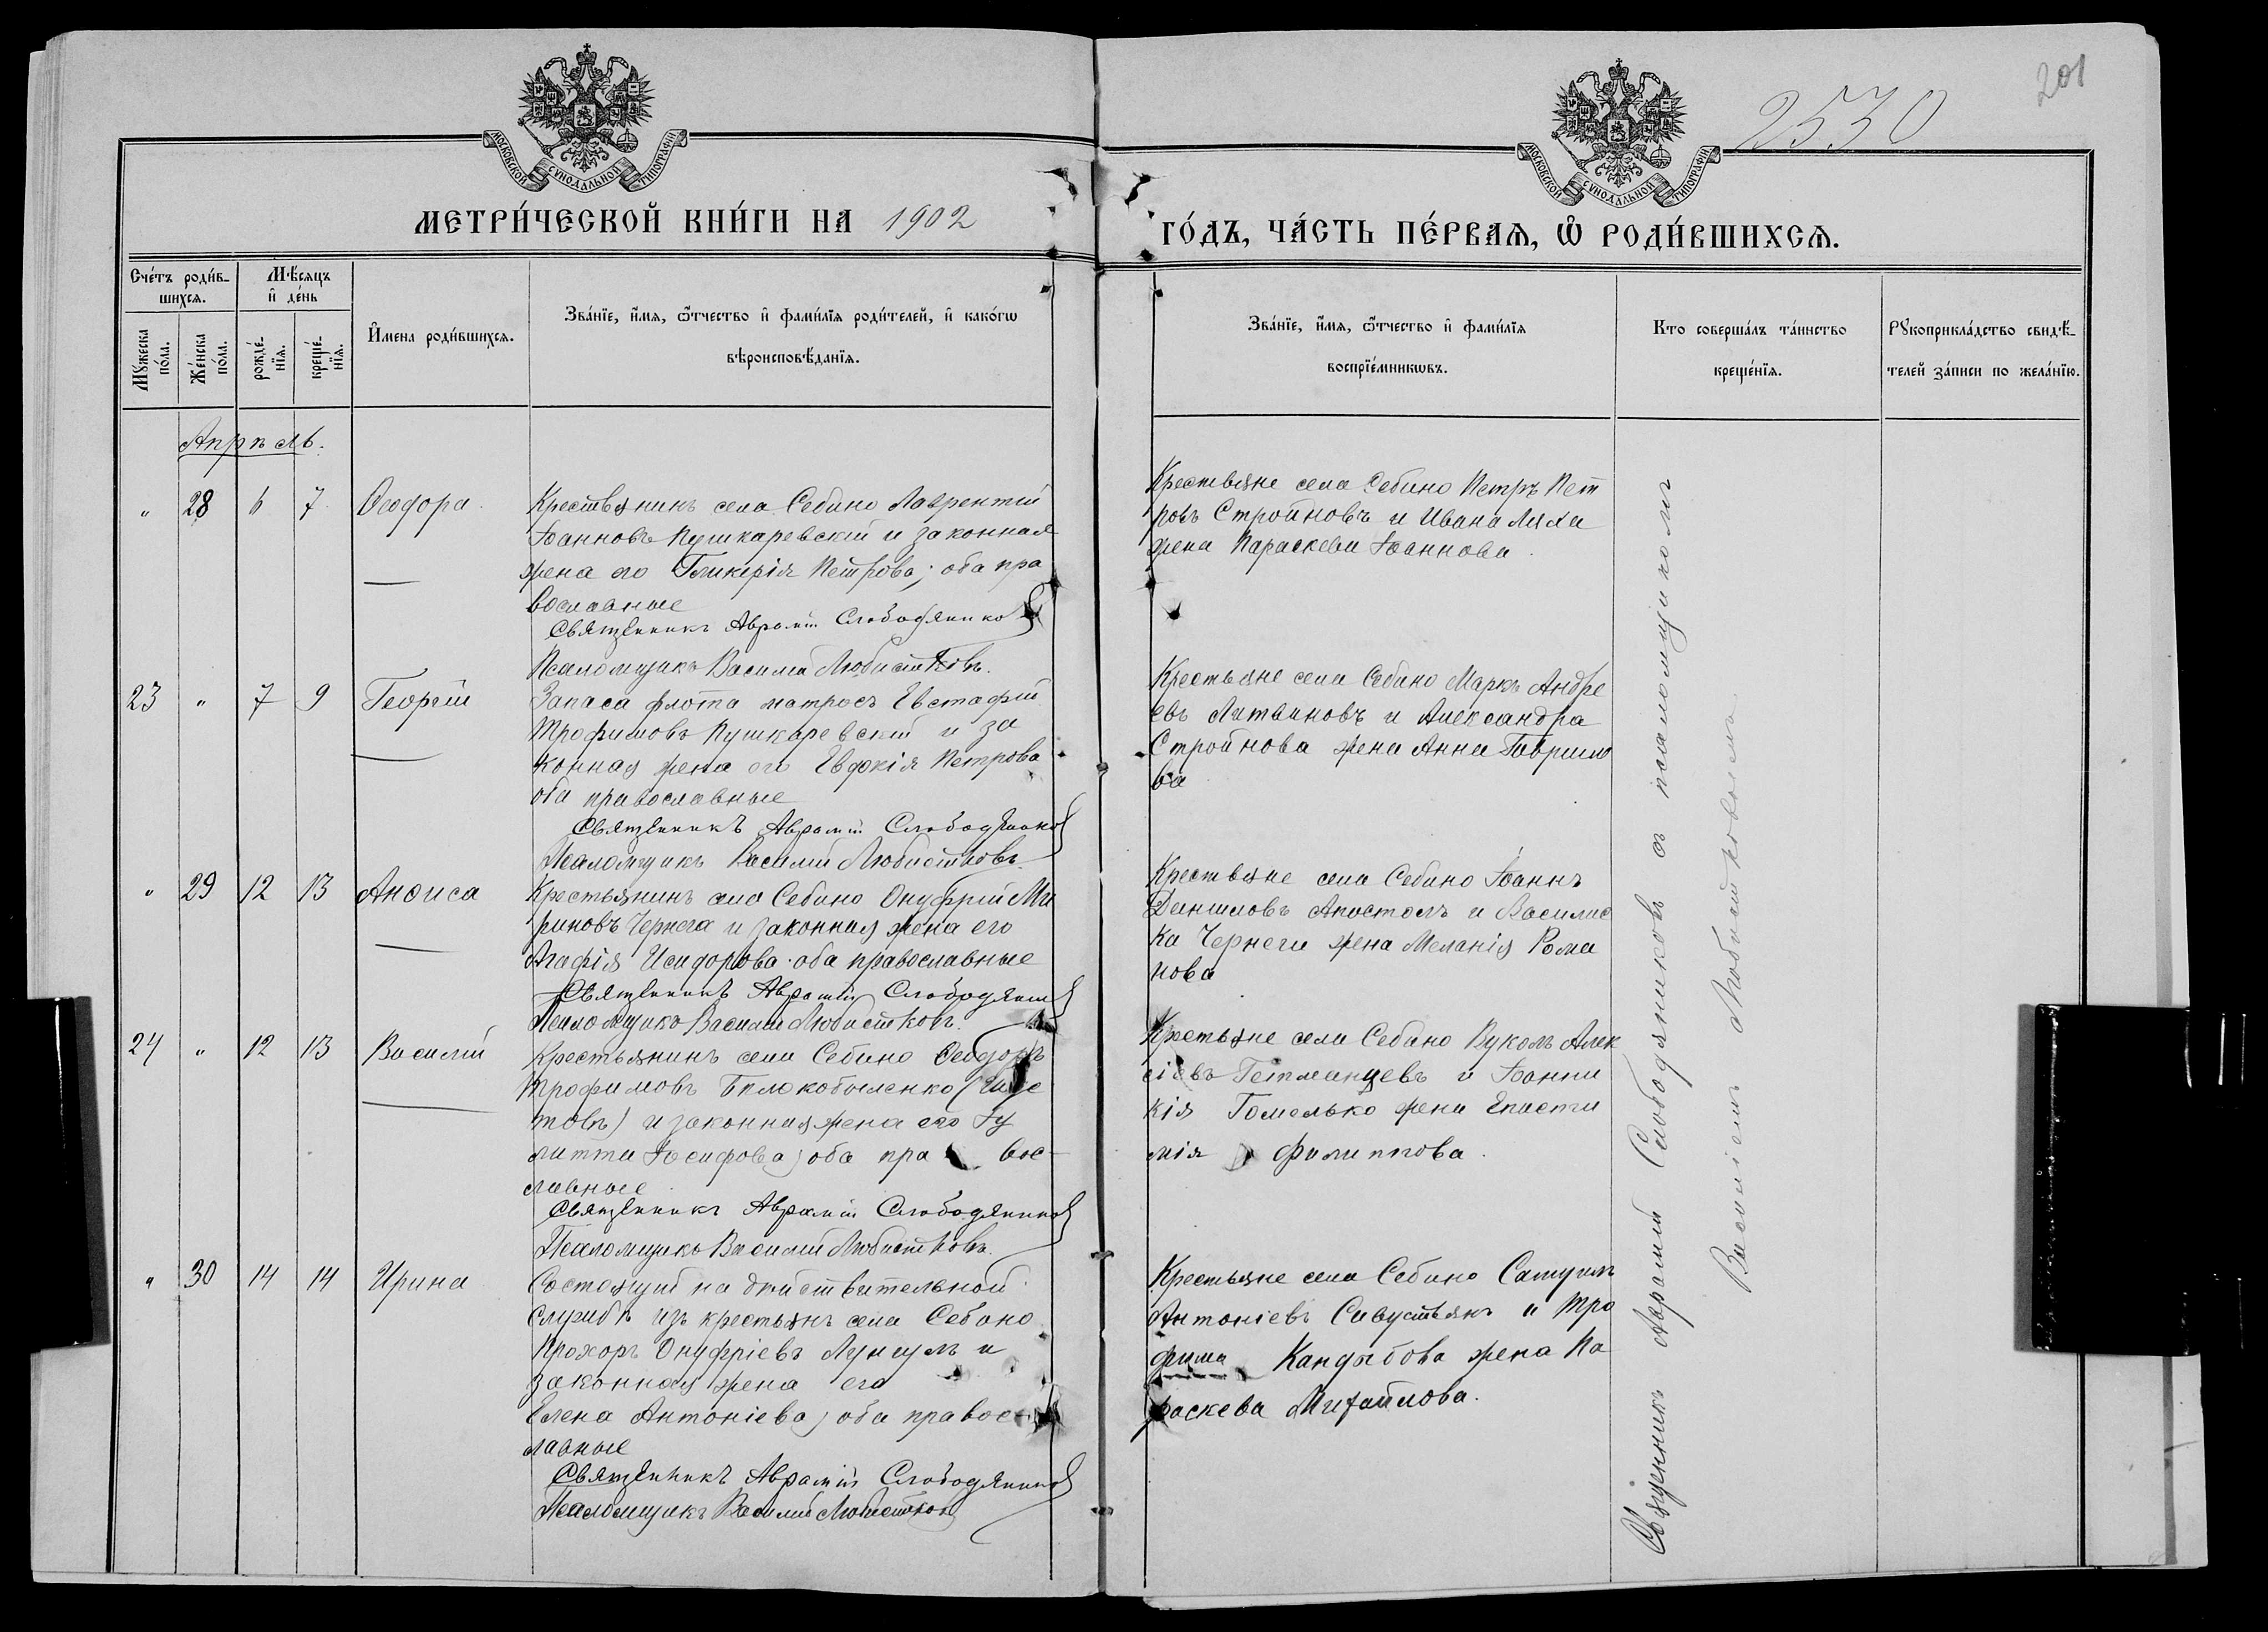 201
2530
МОСКОВСКОЙ СѴНОДАЛЬНОЙ ТИПОГРАФІИ
МОСКОВСКОЙ СѴНОДАЛЬНОЙ ТИПОГРАФІИ
МЕТРИ́ЧЕСКОЙ КНИ́ГИ НА 1902
ГО́ДЪ, ЧА́СТЬ ПЕ́РВАѦ, Ѡ҆ РОДИ́ВШИХСѦ.
Сче́тъ роди́в-
шихсѧ.
Мѣ́сяцъ
и҆ де́нь
Мꙋ́жеска
по́ла.
Же́нска
по́ла.
рожде́-
нїѧ.
креще́-
нїѧ.
И҆мена роди́вшихсѧ.
Зва́нїе, и҆́мѧ, ѻ҆́тчество и҆ фами́лїѧ роди́телей, и҆ како́гѡ
вѣроисповѣ́данїѧ.
Зва́нїе, и҆́мѧ, ѻ҆́тчество и҆ фами́лїѧ
воспрїе́мникѡвъ.
Кто соверша́лъ та́инство
креще́нїѧ.
Рꙋкоприкла́дство свидѣ́-
телей за́писи по жела́нїю.
Апрѣль.
" 28 6 7 Ѳеодора
Крестьянинъ села Себино Лаврентій
Іоанновъ Пушкаревскій и законная
жена его Гликерія Петрова; оба пра
вославные
Священникъ Аврамій Слободяников
Псаломщикъ Василій Любистковъ.
Крестьяне села Себино Петръ Пет
ровъ Стройновъ и Ивана Ляха
жена Параскева Іоаннова.
23 " 7 9 Георгій
Запаса флота матросъ Евстафій
Трофимовъ Пушкаревскій и за
конная жена его Евдокія Петрова
оба православные
Священникъ Аврамій Слободяников
Псаломщикъ Василій Любистковъ
Крестьяне села Себино Маркъ Андре
евъ Литвиновъ и Александра
Стройнова жена Анна Гаврило
ва
" 29 12 13 Анѳиса
Крестьянинъ села Себино Онуфрій Ми
роновъ Чернега и законная жена его
Агафія Исидорова оба православные
Священникъ Аврамій Слободяников
Псаломщикъ Василій Любистковъ.
Крестьяне села Себино Іоаннъ
Данииловъ Апостолъ и Василис
ка Чернеги жена Меланія Рома
нова
24 " 12 13 Василій
Крестьянинъ села Себино Ѳеодоръ
Трофимовъ Бѣлокобыленко
товъ) и законная жена его Іу
литта Іосифова; оба пра вос-
лавные
Священникъ Аврамій Слободяников
Псаломщикъ Василій Любистковъ.
Крестьяне села Себино Вуколъ Алек
сіевъ Гетманцевъ и Іоанни
кія Гомелько жена Еписти
мія Филиппова.
" 30 14 14 Ирина
Состоящий на дѣйствительной
службѣ изъ крестьянъ села Себино
Прохоръ Онуфріевъ Лунгулъ и
законная жена его
Елена Антоніева; оба правос-
лавные
Священникъ Аврамій Слободяников
Псаломщикъ Василій Любистков
Крестьяне села Себино Самуилъ
Антоніевъ Савустьянъ и Тро
фима Кандыбова жена Па
раскева Михайлова.
Священникъ Аврамій Слободяниковъ съ псаломщикомъ
Василіемъ Любистковымъ.